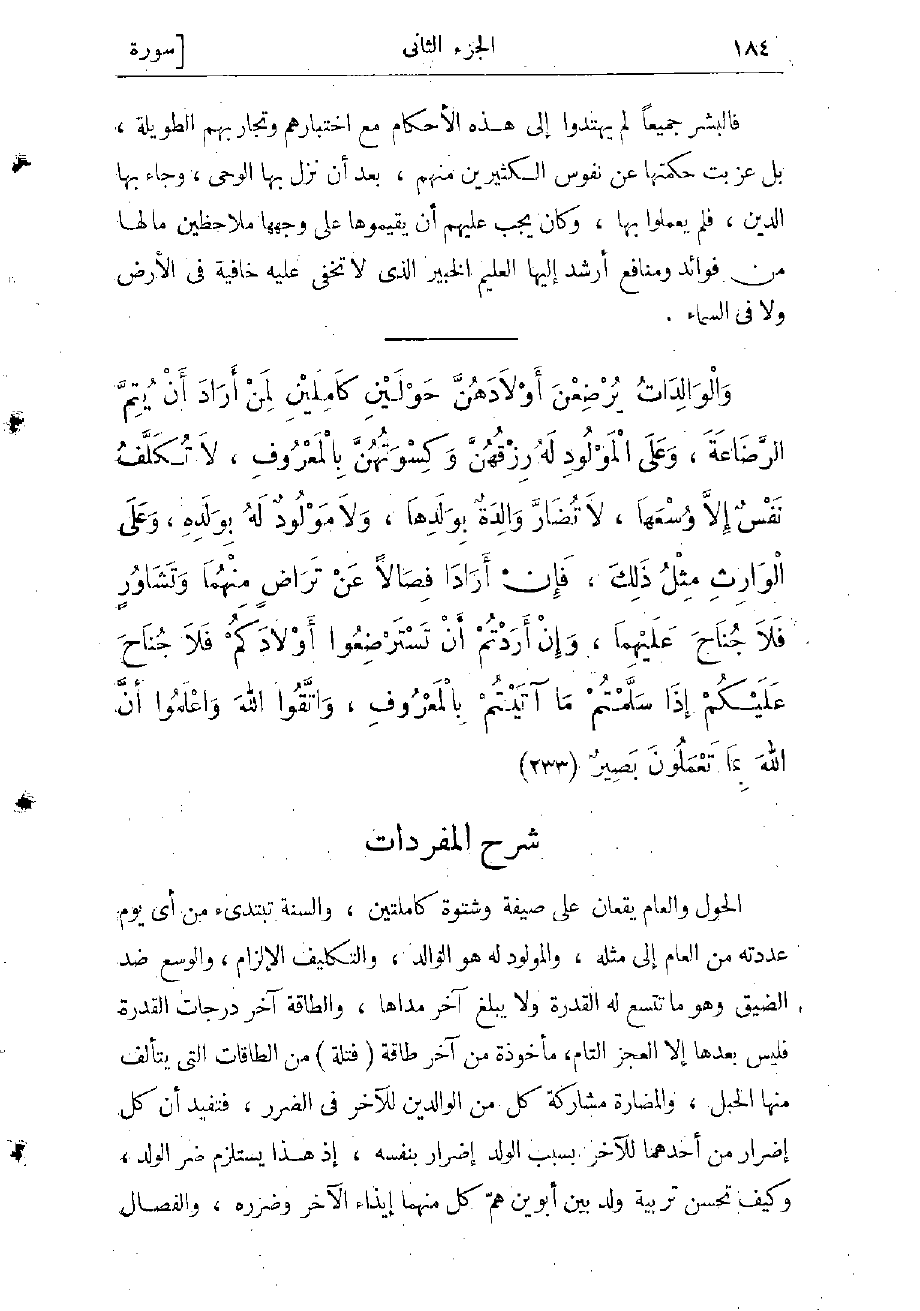 ١٨٤ الجزء الثانى [سورة
فالبشر جميعاً لم يهتدوا إلى هـذه الأحكام مع اختبارهم وتجاربهم الطويلة ،
بل عزبت حكمتها عن نفوس الـكثيرين منهم ، بعد أن نزل بها الوحى ، وجاء بها
الدين ، فلم يعملوا بها ، وكان يجب عليهم أن يقيموها على وجهها ملاحظين مالهـا
من فوائد ومنافع أرشد إليها العليم الخبير الذى لا تخفى عليه خافية فى الأرض
ولا فى السماء .
وَالْوَالِدَاتُ يُرْضِعْنَ أَوْلَادَهُنَّ حَوْلَـيْنِ كَامِلَيْنِ لِمَنْ أَرَادَ أَنْ يُتِمَّ
الرَّضَاعَةَ ، وَعَلَى الْمَوْلُودِ لَهُ رِزْقُهُنَّ وَكِسْوَتُهُنَّ بِالْمَعْرُوفِ ، لَا تُـكَلَّفُ
نَفْسٌ إِلاَّ وُسْعَهَا ، لَا تُضَارَّ وَالِدَةٌ بِوَلَدِهَا ، وَلَا مَوْلُودٌ لَهُ بِوَلَدِهِ ، وَعَلَى
الْوَارِثِ مِثْلُ ذَلِكَ ، فَإِنْ أَرَادَا فِصَالاً عَنْ تَرَاضٍ مِنْهُمَا وَتَشَاوُرٍ
فَلَا جُنَاحَ عَلَيْهِمَا ، وَإِنْ أَرَدْتُمْ أَنْ تَسْتَرْضِعُوا أَوْلَادَكُمْ فَلَا جُنَاحَ
عَلَيْـكُمْ إِذَا سَلَّمْتُمْ مَا آتَيْتُمْ بِالْمَعْرُوفِ ، وَاتَّقُوا اللهَ وَاعْلَمُوا أَنَّ
اللهَ بِمَا تَعْمَلُونَ بَصِيرٌ (٢٣٣)
شرح المفردات
الحول والعام يقعان على صيفة وشتوة كاملتين ، والسنة تبتدىء من أى يوم
عددته من العام إلى مثله ، والمولود له هو الوالد ، والتـكليف الإلزام ، والوسع ضد
الضيق وهو ما تتسع له القدرة ولا يبلغ آخر مداها ، والطاقة آخر درجات القدرة
فليس بعدها إلا العجز التام، مأخوذة من آخر طاقة ( فتلة ) من الطاقات التى يتألف
منها الحبل ، والمضارة مشاركة كل من الوالدين للآخر فى الضرر ، فتفيد أن كل
إضرار من أحدهما للآخر بسبب الولد إضرار بنفسه ، إذ هـذا يستلزم ضر الولد ،
وكيف تحسن تربية ولد بين أبوين همّ كل منهما إيذاء الآخر وضرره ، والفصـال